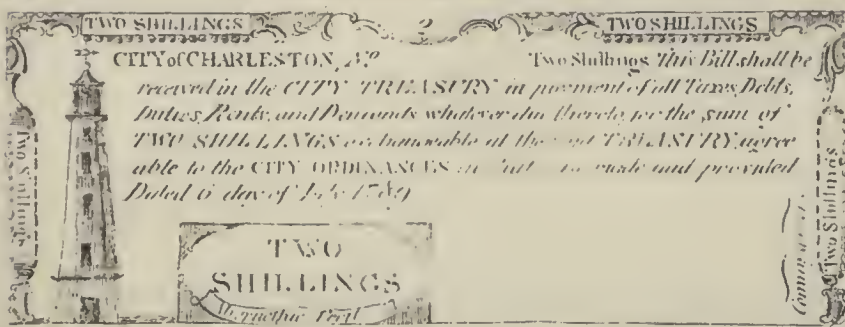 TWO SHILLINGS 2 TWO SHILLINGS
CITY of CHARLESTON, Two Shillings This Bill shall be
received in the CITY TREASURY in payment of all Taxes, Debts,
Duties, Rents, and Demands whatever due thereto, for the sum of
TWO SHILLINGS exchangeable at the said TREASURY, agree
able to the CITY ORDINANCES in that made and provided
Dated 6 day of July 1789
Two Shillings
TWO
SHILLINGS
Two Shillings